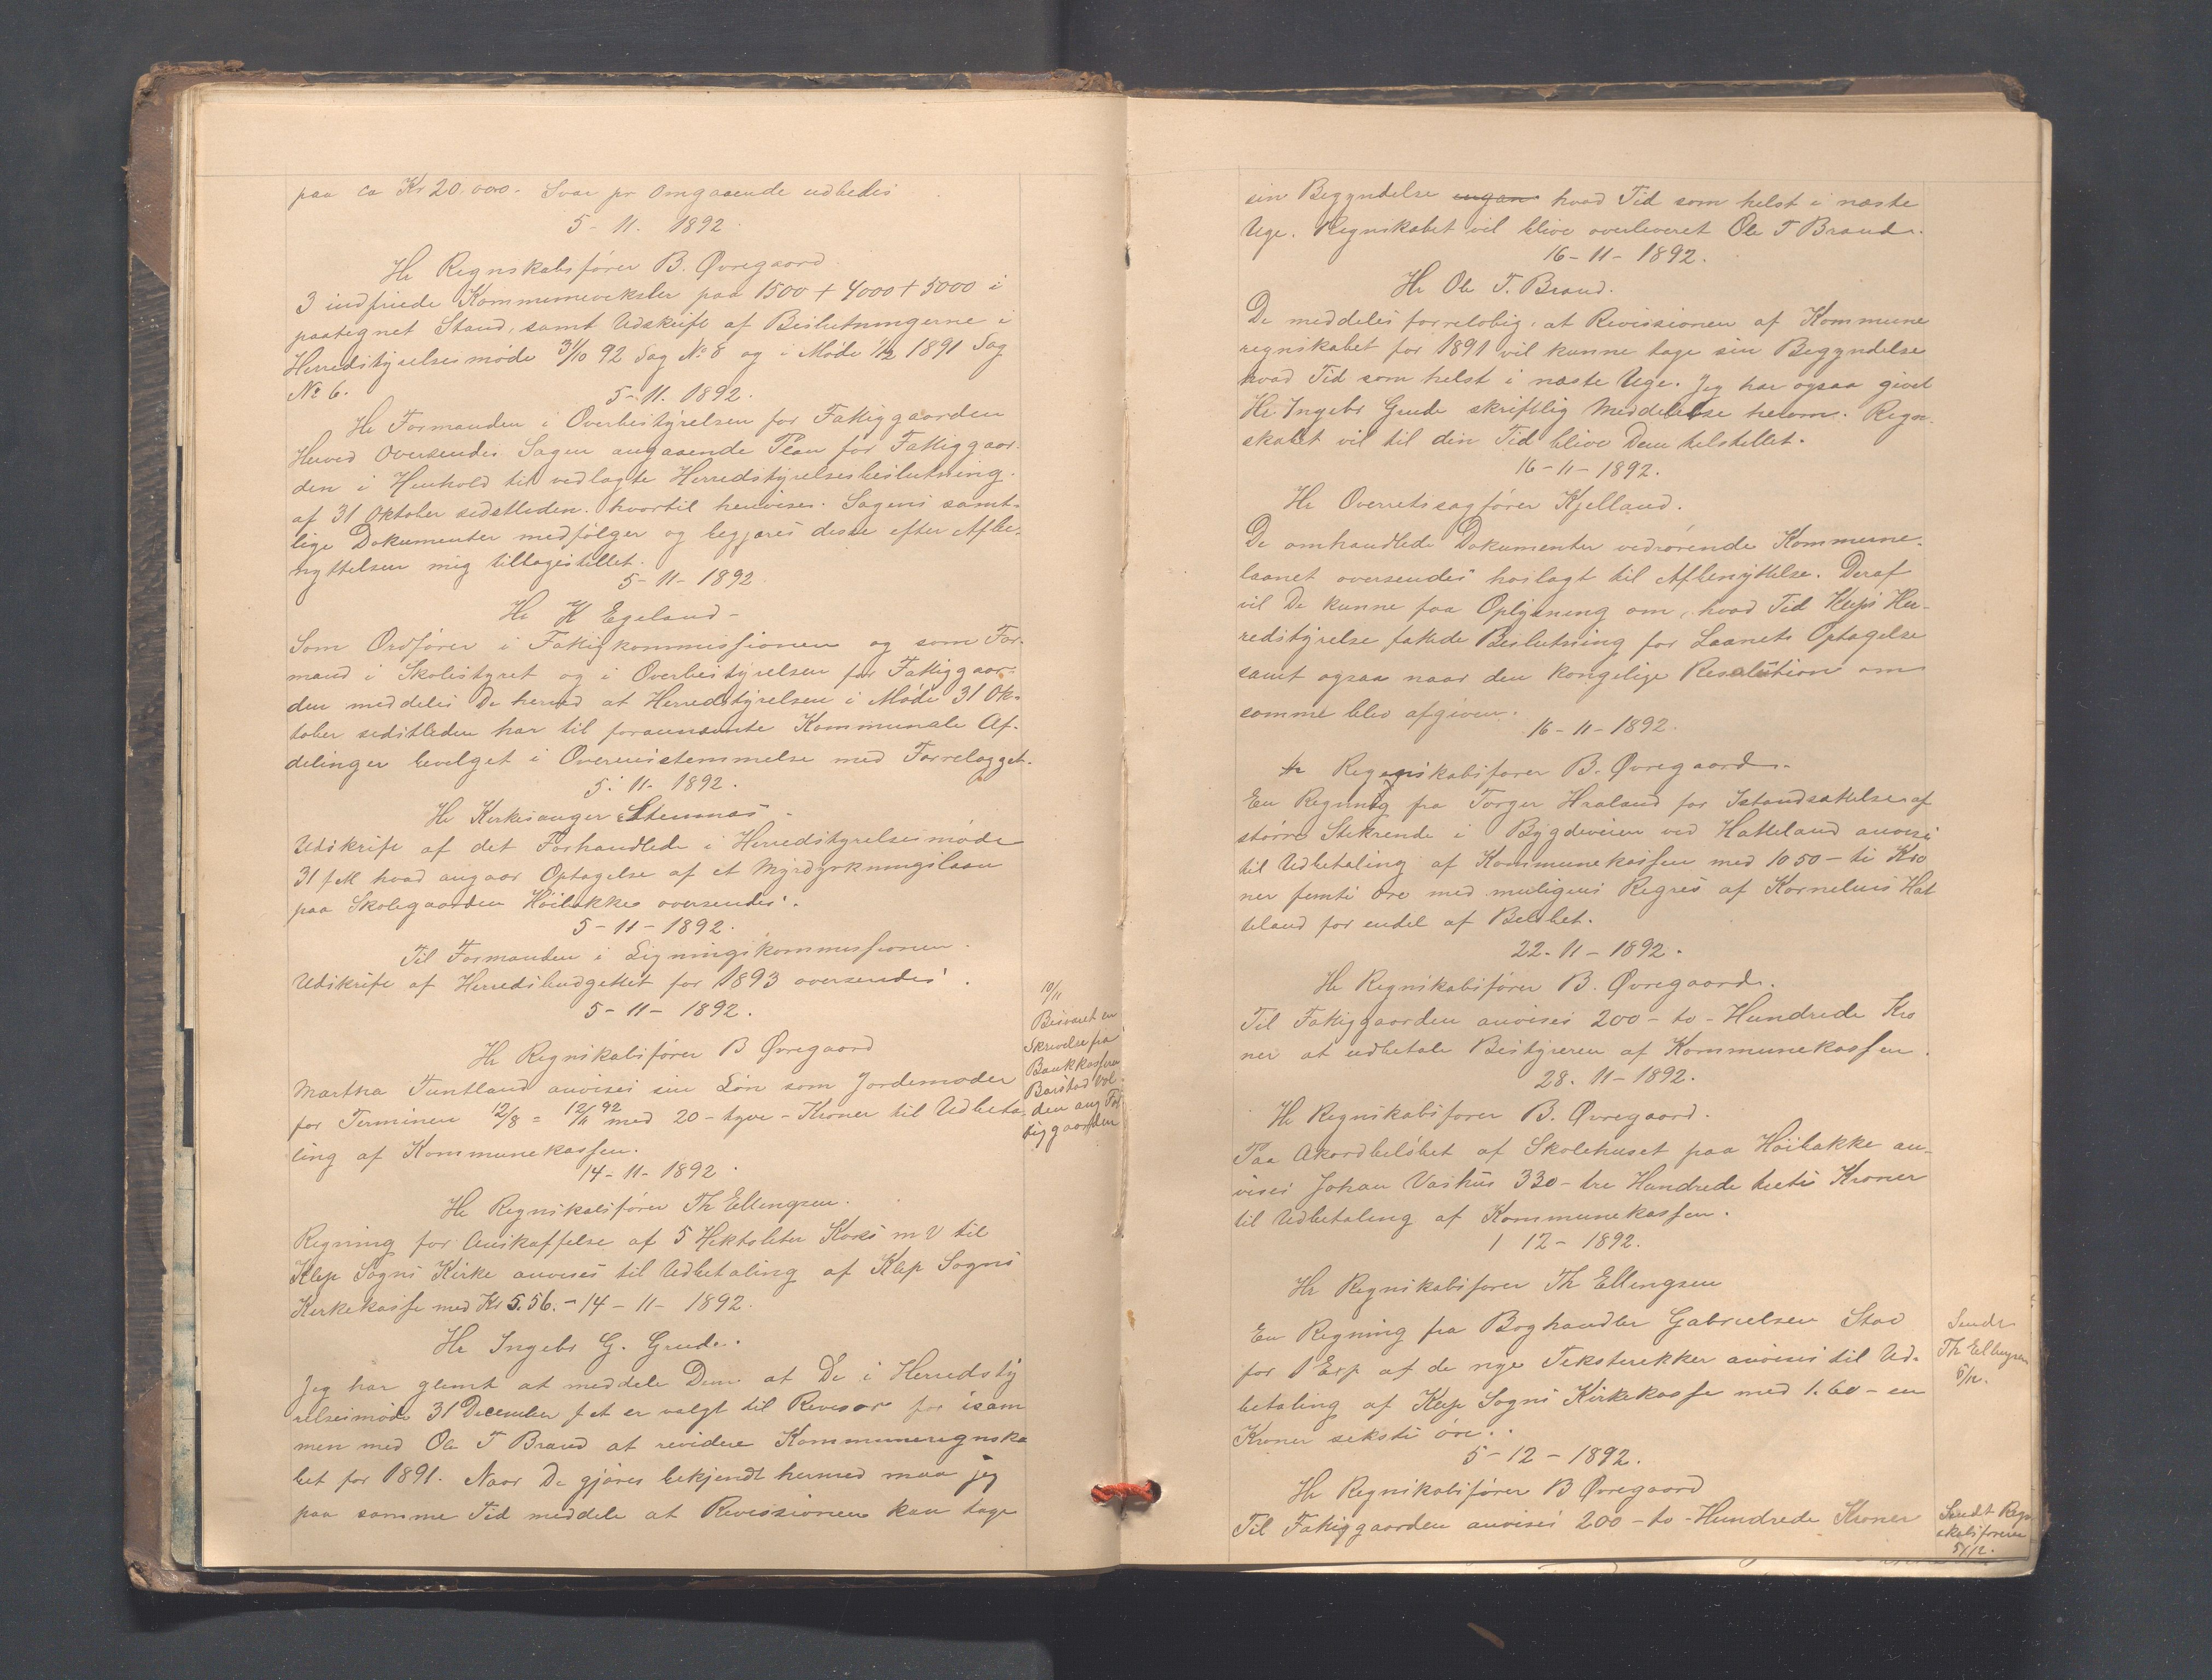 paa ca Kr 20.000. Svar pr Omgaaende udbedes
5-11. 1892.
Hr Regnskabsfører B. Øvregaard.
3 indfriede Kommuneveksler paa 1500 + 4000 + 5000 i
paategnet Stand, samt Udskrift af Beslutningerne i
Herredstyrelsesmøde 31/10 92 Sag No 8 og i Møde 1/12 1891 Sag
No 6.
5-11. 1892.
Hr Formanden i Overbestyrelsen for Fattiggaarden
Herved oversendes Sagen angaaende Plan for Fattiggaar-
den i Henhold til vedlagte Herredstyrelsesbeslutning
af 31 Oktober sidstleden. hvortil henvises. Sagens samt-
lige Dokumenter medfølger og begjæres disse efter Afbe-
nyttelsen mig tilbagestillet.
5-11-1892
Hr K Egeland-
Som Ordfører i Fattigkommissionen og som For-
mand i Skolestyret og i Overbestyrelsen for Fattiggaar-
den meddeles De herved at Herredstyrelsen i Møde 31 Ok-
tober sidstleden har til forannævnte Kommunale Af-
delinger bevilget i Overensstemmelse med Forrelagget.
5-11-1892.
Hr Kirkesanger Stennes.
Udskrift af det Forhandlede i Herredstyrelsesmøde
31 f M hvad angaar Optagelse af et Myrdyrkningslaan
paa Skolegaarden Høibakke oversendes.
5-11-1892.
Til Formanden i Ligningskommissionen.
Udskrift af Herredsbudgettet for 1893 oversendes.
5-11-1892.
Hr Regnskabsfører B Øvregaard
Martha Tuntland anvises sin Løn som Jordemoder
for Terminen 12/8 = 12/11 92 med 20-tyve-Kroner til Udbeta-
ling af Kommunekassen.
14-11-1892.
10/11
Besvaret en
Skrivelse fra
Bankkasserer
Barstad
den ang Fat
tiggaarden
Hr Regnskabsfører Th Ellingsen.
Regning for Anskaffelse af 5 Hektoliter Koks m V til
Klep Sogns Kirke anvises til Udbetaling af Klep Sogns
Kirkekasse med Kr 5.56.-14-11-1892.
Hr Ingebr G. Grude.
Jeg har glemt at meddele Dem at De i Herredsty
relsesmøde 31 December f A er valgt til Revisor for isam
men med Ole T Braud at revidere Kommuneregnska
bet for 1891. Naar De gjøres bekjendt hermed maa jeg
paa samme Tid meddele at Revissionen kan tage
sin Begyndelse engan hvad Tid som helst i næste
Uge. Regnskabet vil blive overleveret Ole T Braud.
16-11-1892.
Hr Ole T. Braud.
De meddeles forreløbig, at Revissionen af Kommune
regnskabet for 1891 vil kunne tage sin Begyndelse
hvad Tid som helst i næste Uge. Jeg har ogsaa givet
Hr Ingebr Grude skriftlig Meddelelse herom. Regn-
skabet vil til din Tid blive Dem tilstillet.
16-11-1892.
Hr Overretssagfører Kjelland.
De omhandlede Dokumenter vedrørende Kommune-
laanet oversendes hoslagt til Afbenyttelse. Deraf
vil De kunne faa Oplysning om, hvad Tid Kleps Her-
redstyrelse fattede Beslutning for Laanets Optagelse
samt ogsaa naar den kongelige Resolution om
samme blev afgiven.
16-11-1892.
Hr Regnskabsfører B. Øvregaard.
En Regning fra Torger Hraland for Istandsættelse af
større Stikrende i Bygdeveien ved Hatteland anvises
til Udbetaling af Kommunekassen med 10 50-ti Kro
ner femti øre med muligens Regres af Kornelius Hat
teland for endel af Beløbet.
22-11-1892.
Hr Regnskabsfører B. Øvregaard.
Til Fattiggaarden anvises 200-to-Hundrede Kro
ner at udbetale Bestyreren af Kommunekassen.
28.11-1892.
Hr Regnskabsfører B. Øvregaard.
Paa Akordbeløbet af Skolehuset paa Høibakke an-
vises Johan Vashus 330-tre Hundrede treti Kroner
til Udbetaling af Kommunekassen.
1 12-1892.
Hr Regnskabsfører Th Ellingsen
En Regning fra Boghandler Gabrielsen Stav
for 1 Exp af de nye Tekstrekker anvises til Ud-
betaling af Klep Sogns Kirkekasse med 1.60-en
Kroner seksti øre.
5-12-1892.
Sendt
Th Ellingsen
6/12.
Hr Regnskabsfører B Øvregaard
Til Fattiggaarden anvises 200-to-Hundrede Kroner
Sendt Regn
skabsføreren
5/12.